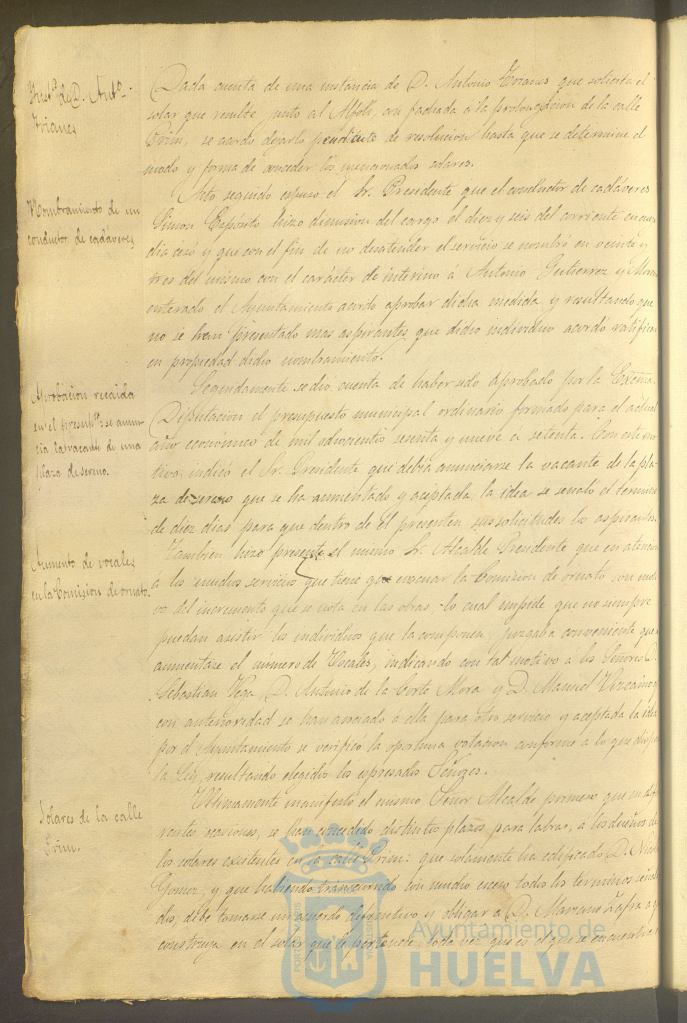 Inst.ª de D. Ant.º
Trianes
Dada cuenta de una instancia de D. Antonio Trianes que solicita el
solar que resulte junto al Alfolí, con fachada a la prolongacion de la calle
Prim, se acordo dejarlo pendiente de resolucion hasta que se determine el
modo y forma de conceder los mencionados solares.
Nombramiento de un
conductor de cadáveres
Acto seguido espuso el Sr. Presidente que el conductor de cadáveres
Simon Espósito hizo dimision del cargo el diez y seis del corriente en cuyo
dia cesó y que con el fin de no desatender el servicio se nombró en veinte y
tres del mismo con el carácter de interino á Antonio Gutierrez y
enterado el Ayuntamiento acordo aprobar dicha medida y resultando que
no se han presentado mas aspirantes que dicho individuo acordó ratificar
en propiedad dicho nombramiento.
Aprobacion recaida
en el presup.to se anun-
cia la vacante de una
plaza de sereno.
Segundamente se dio cuenta de haber sido aprobado por la Excma.
Diputacion el presupuesto municipal ordinario formado para el actual
año economico de mil ochocientos sesenta y nueve á setenta. Con este mo-
tivo indicó el Sr. Presidente que debia anunciarse la vacante de la pla-
za de sereno que se ha aumentado y aceptada la idea se señaló el termino
de diez dias para que dentro de él presenten sus solicitudes los aspirantes.
Aumento de vocales
en la Comision de ornato.
Tambien hizo presente el mismo Sr. Alcalde Presidente que en atencion
á los muchos servicios que tiene que evacuar la Comision de ornato con moti-
vo del incremento que se nota en las obras, lo cual impide que no siempre
puedan asistir los individuos que la componen, juzgaba conveniente que
aumentase el número de Vocales, indicando con tal motivo á los Señores D.
Sebastian Vega D. Antonio de la Corte Mora y D. Manuel
con anterioridad se han asociado á ella para otro servicio y aceptada la idea
por el Ayuntamiento se verificó la oportuna votacion conforme a lo que dispone
la Ley, resultando elegidos los espresados Señores.
Solares de la calle
Prim.
Ultimamente manifestó el mismo Señor Alcalde primero que en
ocasiones, se han concedido distintos plazos para labrar, á los dueños de
los solares existentes en la calle Prim: que solamente ha edificado D.
Gomez, y que habiendo transcurrido con mucho exceso todos los terminos
debe tomarse un acuerdo definitivo y obligar a D. Mariano Zafra a q
construya en el solar que le pertenece, toda vez que es el que se encuentra
PORTUS MARIS
Ayuntamiento de
HUELVA